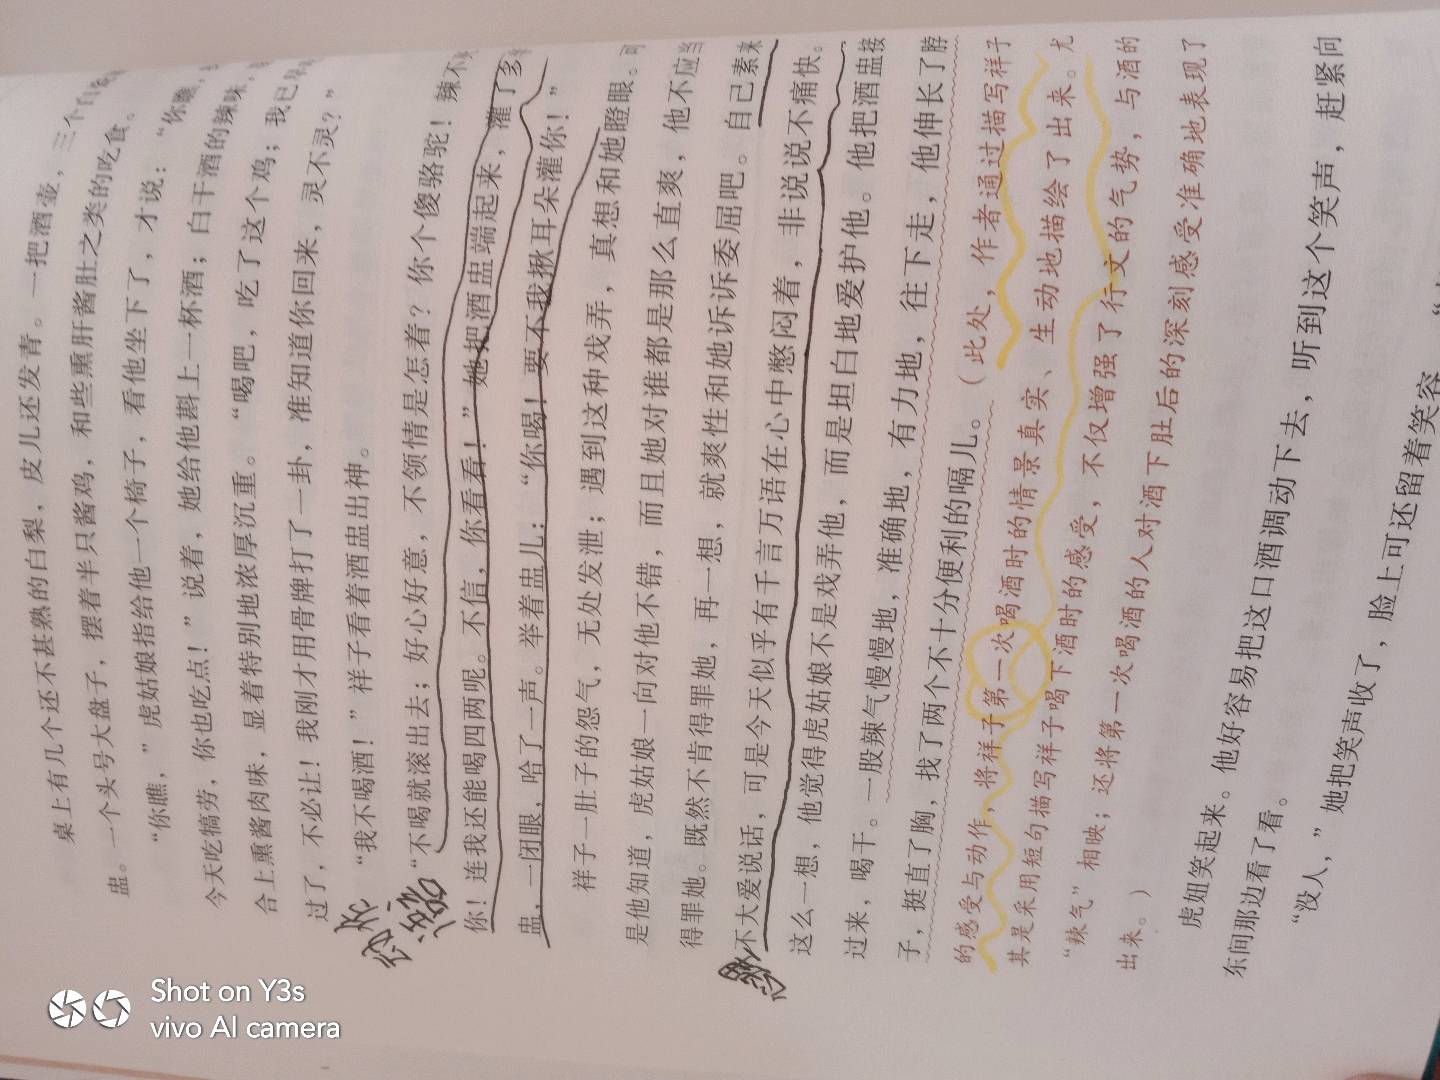 桌上有几个还不甚熟的白梨，皮儿还发青。一把酒壶，三个白
盅。一个头号大盘子，摆着半只酱鸡，和些熏肝酱肚之类的吃食。
“你瞧，”虎姑娘指给他一个椅子，看他坐下了，才说：“你瞧，
今天吃犒劳，你也吃点！”说着，她给他斟上一杯酒；白干酒的辣味，
合上熏酱肉味，显着特别地浓厚沉重。“喝吧，吃了这个鸡；我已
过了，不必让！我刚才用骨牌打了一卦，准知道你回来，灵不灵？”
“我不喝酒！”祥子看着酒盅出神。
“不喝就滚出去；好心好意，不领情是怎着？你个傻骆驼！辣不
你！连我还能喝四两呢。不信，你看看！”她把酒盅端起来，灌了多
盅，一闭眼，哈了一声。举着盅儿：“你喝！要不我揪耳朵灌你！”
祥子一肚子的怨气，无处发泄；遇到这种戏弄，真想和她瞪眼。可
是他知道，虎姑娘一向对他不错，而且她对谁都是那么直爽，他不应当
得罪她。既然不肯得罪她，再一想，就爽性和她诉诉委屈吧。自己素来
不大爱说话，可是今天似乎有千言万语在心中憋闷着，非说说不痛快。
这么一想，他觉得虎姑娘不是戏弄他，而是坦白地爱护他。他把酒盅接
过来，喝干。一股辣气慢慢地，准确地，有力地，往下走，他伸长了脖
子，挺直了胸，找了两个不十分便利的嗝儿。（此处，作者通过描写祥子
的感受与动作，将祥子第一次喝酒时的情景真实、生动地描绘了出来。尤
其是采用短句描写祥子喝下酒时的感受，不仅增强了行文的气势，与酒的
“辣气”相映；还将第一次喝酒的人对酒下肚后的深刻感受准确地表现了
出来。）
虎妞笑起来。他好容易把这口酒调动下去，听到这个笑声，赶紧向
东间那边看了看。
“没人，”她把笑声收了，脸上可还留着笑容。
Shot on Y3s
vivo AI camera